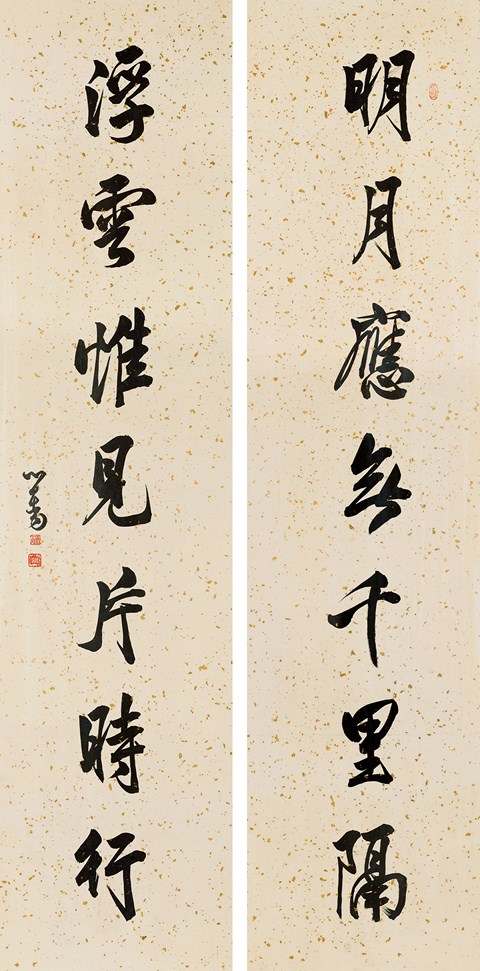 明月應無千里隔
浮雲惟見片時行
心畬